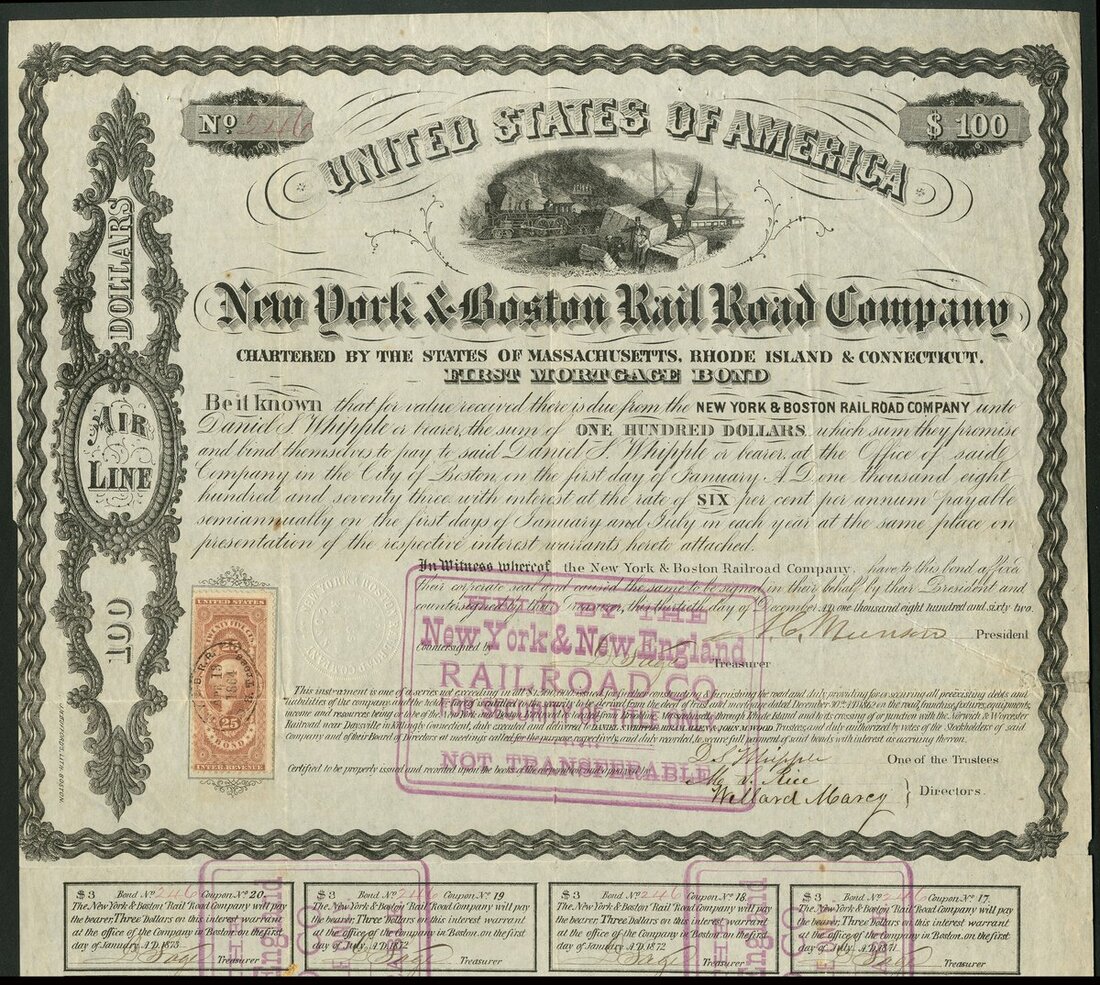 No 246
$ 100
UNITED STATES OF AMERICA
New York & Boston Rail Road Company
CHARTERED BY THE STATES OF MASSACHUSETTS, RHODE ISLAND & CONNECTICUT.
FIRST MORTGAGE BOND
DOLLARS
AIR
LINE
100
Be it known that for value received there is due from the NEW YORK & BOSTON RAILROAD COMPANY unto
Daniel S. Whipple or bearer, the sum of ONE HUNDRED DOLLARS, which sum they promise
and bind themselves to pay to said Daniel S. Whipple or bearer, at the Office of said
Company in the City of Boston, on the first day of January A.D. one thousand eight
hundred and seventy three with interest at the rate of SIX per cent per annum payable
semiannually on the first days of January and July in each year at the same place on
presentation of the respective interest warrants hereto attached.
In Witness whereof the New York & Boston Railroad Company, have to this bond affixed
their corporate seal and caused the same to be signed in their behalf by their President and
countersigned by their Treasurer, this thirtieth day of December A.D. one thousand eight hundred and sixty two.
President
Countersigned by
D. Sage
Treasurer
This instrument is one of a series not exceeding in all
for further constructing & furnishing the road and duly providing for & securing all preexisting debts and
liabilities of the company and the holder
dated December 30th A.D. 1862 on the road, franchise, fixtures, equipments,
income and resources
through Rhode Island and to its crossing of or junction with the Norwich & Worcester
Railroad near Danielsville in Killingly Connecticut, and executed and delivered to
Trustees, and duly authorized by votes of the Stockholders of said
Company and of their Board of Directors at meetings called for the purpose respectively, and duly recorded to secure full payment of said bonds with interest as accruing thereon.
D. S. Whipple One of the Trustees
Certified to be properly issued and recorded upon the books of the corporation
Rice
Willard Marcy } Directors.
HELD BY THE
New York & New England
RAILROAD CO
FOR SECURITY OF TITLE ONLY
NOT TRANSFERABLE
UNITED STATES
TWENTY FIVE
1864
25
BOND
INTER. REVENUE
$ 3 Bond No 246 Coupon No 20.
The New York & Boston Rail Road Company will pay
the bearer, Three Dollars on this interest warrant
at the office of the Company in Boston, on the first
day of January, A.D. 1873
D Sage Treasurer
$ 3 Bond No 246 Coupon No 19
The New York & Boston Rail Road Company will pay
the bearer, Three Dollars on this interest warrant
at the office of the Company in Boston, on the first
day of July, A.D. 1872
D Sage Treasurer
$ 3 Bond No 246 Coupon No 18.
The New York & Boston Rail Road Company will pay
the bearer, Three Dollars on this interest warrant
at the office of the Company in Boston, on the first
day of January, A.D. 1872
D Sage Treasurer
$ 3 Bond No 246 Coupon No 17.
The New York & Boston Rail Road Company will pay
the bearer, Three Dollars on this interest warrant
at the office of the Company in Boston, on the first
day of July, A.D. 1871.
D Sage Treasurer